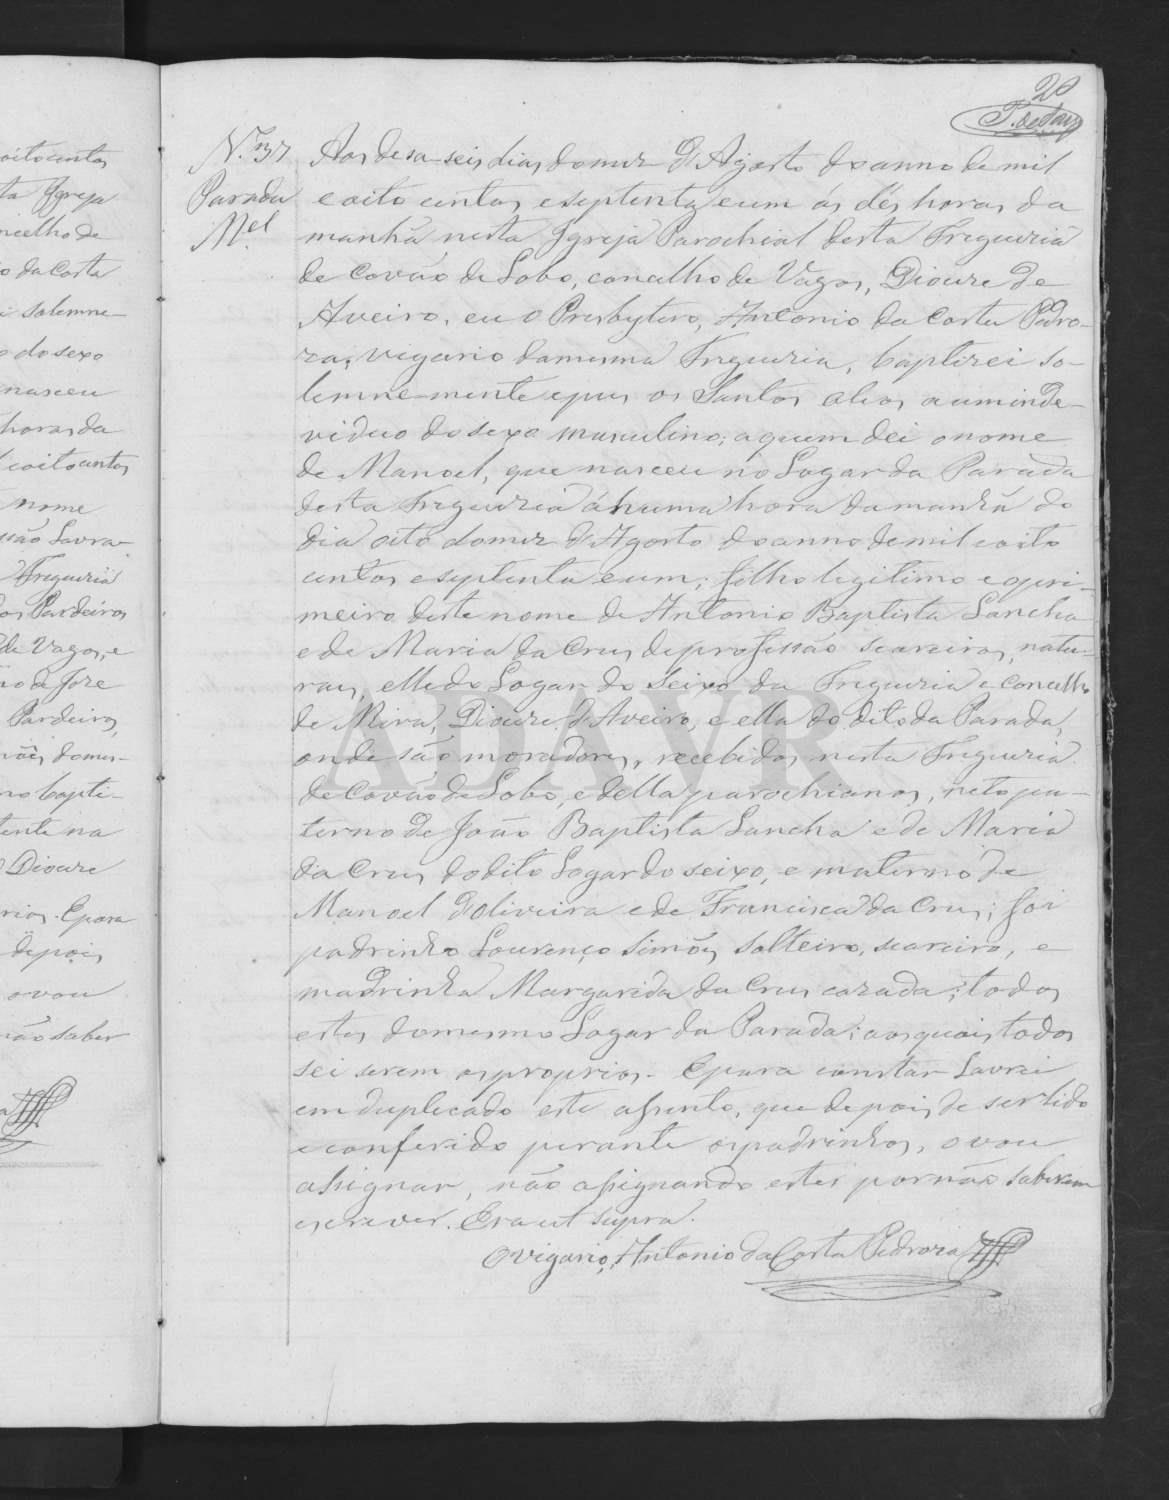 20
N.º 37
Parada
M.el
Aos desaseis dias do mez d'Agosto do anno de mil
e oito centos e septenta e um ás dés horas da
manhã nesta Igreja Parochial desta Freguezia
de Covão de Lobo, concelho de Vagos, Diocese de
Aveiro, eu o Presbytero, Antonio da Costa Pedro-
za, vigario da mesma Freguezia, baptizei so-
lemnemente e puz os Santos oleos a um inde-
viduo do sexo masculino; a quem dei o nome
de Manoel, que nasceu no Logar da Parada
desta Freguezia á huma hora da manhã do
dia oito do mez d'Agosto do anno de mil e oito
centos e septenta e um; filho legitimo e o pri-
meiro deste nome de Antonio Baptista Lancha
e de Maria da Cruz de profissão seareiros, natu-
raes, elle do Logar do Seixo da Freguezia e Concelho
de Mira, Diocese d'Aveiro, e ella do dito da Parada,
onde são moradores, recebidos nesta Freguezia
de Covão de Lobo, e della parochianos, neto pa-
terno de João Baptista Lancha e de Maria
da Cruz do dito Logar do seixo, e materno de
Manoel d'Oliveira e de Francisca da Cruz; foi
padrinho Lourenço Simões solteiro, seareiro, e
madrinha Margarida da Cruz cazada; todos
estes do mesmo Logar da Parada: aos quais todos
sei serem os proprios. E para constar Lavrei
em duplicado este assento, que depois de ser lido
e conferido perante os padrinhos, o vou
assignar, não assignando estes por não saberem
escrever. Era ut supra.
O vigario, Antonio da Costa Pedroza
ADAVR
oitocentos
ta Igreja
ncelho de
o da Costa
i solemne-
o do sexo
nasceu
horas da
l e oito centos
nome
ssão Lavra-
Freguezia
dos Pardeiros
de Vagos, e
no de Joze
Pardeiros,
mões domes-
no bapti-
tente na
o Diocese
rios. E para
depois
o vou
não saber